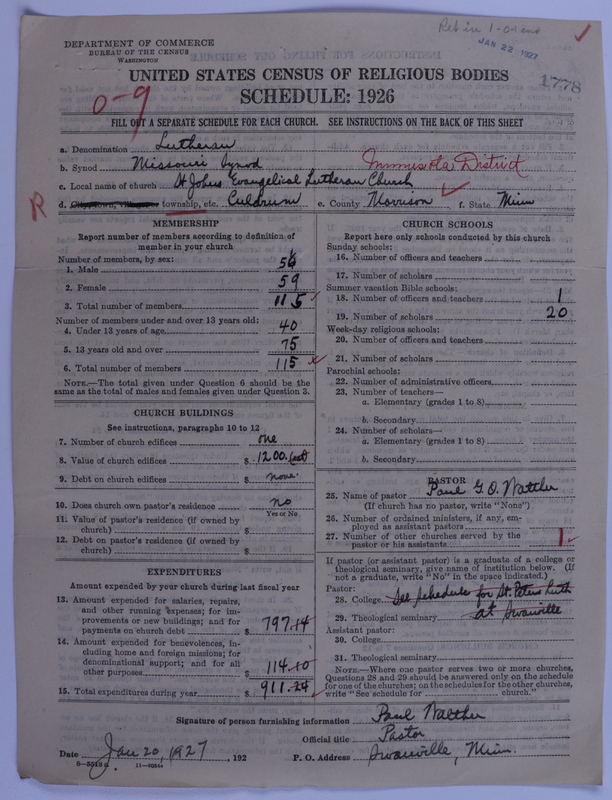 Ret in 1-04 and
JAN 22 1927
1778
DEPARTMENT OF COMMERCE
BUREAU OF THE CENSUS
WASHINGTON
UNITED STATES CENSUS OF RELIGIOUS BODIES
SCHEDULE: 1926
0-9
FILL OUT A SEPARATE SCHEDULE FOR EACH CHURCH. SEE INSTRUCTIONS ON THE BACK OF THIS SHEET
a. Denomination Lutheran
b. Synod Missouri Synod Minnesota District
c. Local name of church St Johns Evangelical Lutheran Church
R
d. township, etc. Culdrum e. County Morrison f. State Minn
MEMBERSHIP
Report number of members according to definition of
member in your church
Number of members, by sex:
1. Male 56
2. Female 59
3. Total number of members 115
Number of members under and over 13 years old:
4. Under 13 years of age 40
5. 13 years old and over 75
6. Total number of members 115
NOTE.—The total given under Question 6 should be the
same as the total of males and females given under Question 3.
CHURCH BUILDINGS
See instructions, paragraphs 10 to 12
7. Number of church edifices one
8. Value of church edifices $ 1200.
9. Debt on church edifices $ none
10. Does church own pastor's residence no
Yes or No
11. Value of pastor's residence (if owned by
church) $
12. Debt on pastor's residence (if owned by
church) $
EXPENDITURES
Amount expended by your church during last fiscal year
13. Amount expended for salaries, repairs,
and other running expenses; for im-
provements or new buildings; and for
payments on church debt $ 797.14
14. Amount expended for benevolences, in-
cluding home and foreign missions; for
denominational support; and for all
other purposes $ 114.10
15. Total expenditures during year $ 911.24
CHURCH SCHOOLS
Report here only schools conducted by this church
Sunday schools:
16. Number of officers and teachers
17. Number of scholars
Summer vacation Bible schools:
18. Number of officers and teachers 1
19. Number of scholars 20
Week-day religious schools:
20. Number of officers and teachers
21. Number of scholars
Parochial schools:
22. Number of administrative officers
23. Number of teachers—
a. Elementary (grades 1 to 8)
b. Secondary
24. Number of scholars—
a. Elementary (grades 1 to 8)
b. Secondary
PASTOR
25. Name of pastor Paul G. O. Walther
(If church has no pastor, write "None")
26. Number of ordained ministers, if any, em-
ployed as assistant pastors
27. Number of other churches served by the
pastor or his assistants 1
If pastor (or assistant pastor) is a graduate of a college or
theological seminary, give name of institution below. (If
not a graduate, write "No" in the space indicated.)
Pastor:
28. College See schedule for St. Peters Luth
29. Theological seminary at Swanville
Assistant pastor:
30. College
31. Theological seminary
NOTE.—Where one pastor serves two or more churches,
Questions 28 and 29 should be answered only on the schedule
for one of the churches; on the schedules for the other churches,
write "See schedule for church."
Signature of person furnishing information Paul Walther
Official title Pastor
Date Jan 20, 1927, 192 P. O. Address Swanville, Minn.
8-5518a 11-4056a